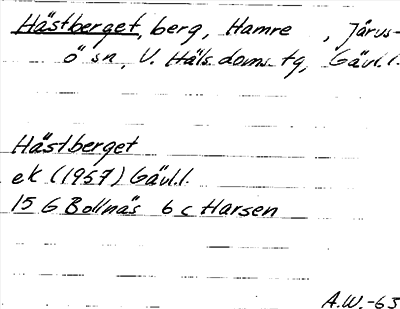 Hästberget, berg, Hamre, Järvs-
ö sn, V. Häls. doms. tg, Gävl. l.
Hästberget
ek (1957) Gävl.l.
15 G Bollnäs 6 c Harsen
A.W.-63